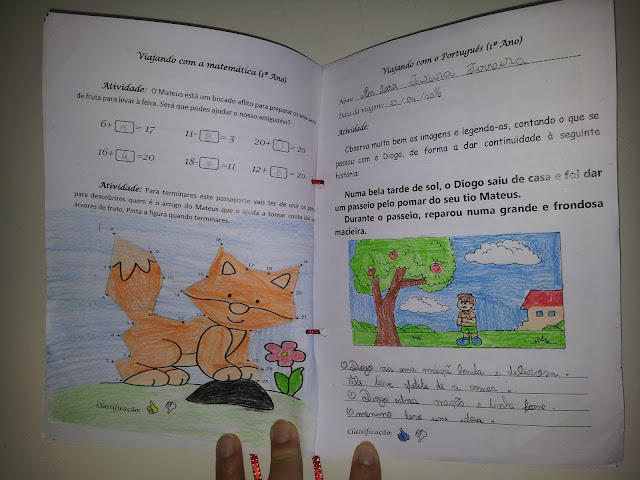 Viajando com a matemática (1º Ano)
Atividade: O Mateus está um bocado aflito para preparar os
de fruta para levar à feira. Será que podes ajudar o nosso amiguinho?
6+ = 17 11- 8 = 3 20+ = 20
16+ 4 =20 18- =11 12+ 8 = 20
Atividade: Para terminares este passaporte vais ter de unir os
para descobrires quem é o amigo do Mateus que o ajuda a tomar conta das
árvores de fruto. Pinta a figura quando terminares.
Classificação:
Viajando com o Português (1º Ano)
Nome
Data da viagem:
Atividade:
Observa muito bem as imagens e legenda-as, contando o que se
passou com o Diogo, de forma a dar continuidade à seguinte
história:
Numa bela tarde de sol, o Diogo saiu de casa e foi dar
um passeio pelo pomar do seu tio Mateus.
Durante o passeio, reparou numa grande e frondosa
macieira.
O Diogo viu uma maçã linda e deliciosa.
Ele teve de a comer.
O Diogo a maçã e tinha fome.
O menino teve uma ideia.
Classificação: